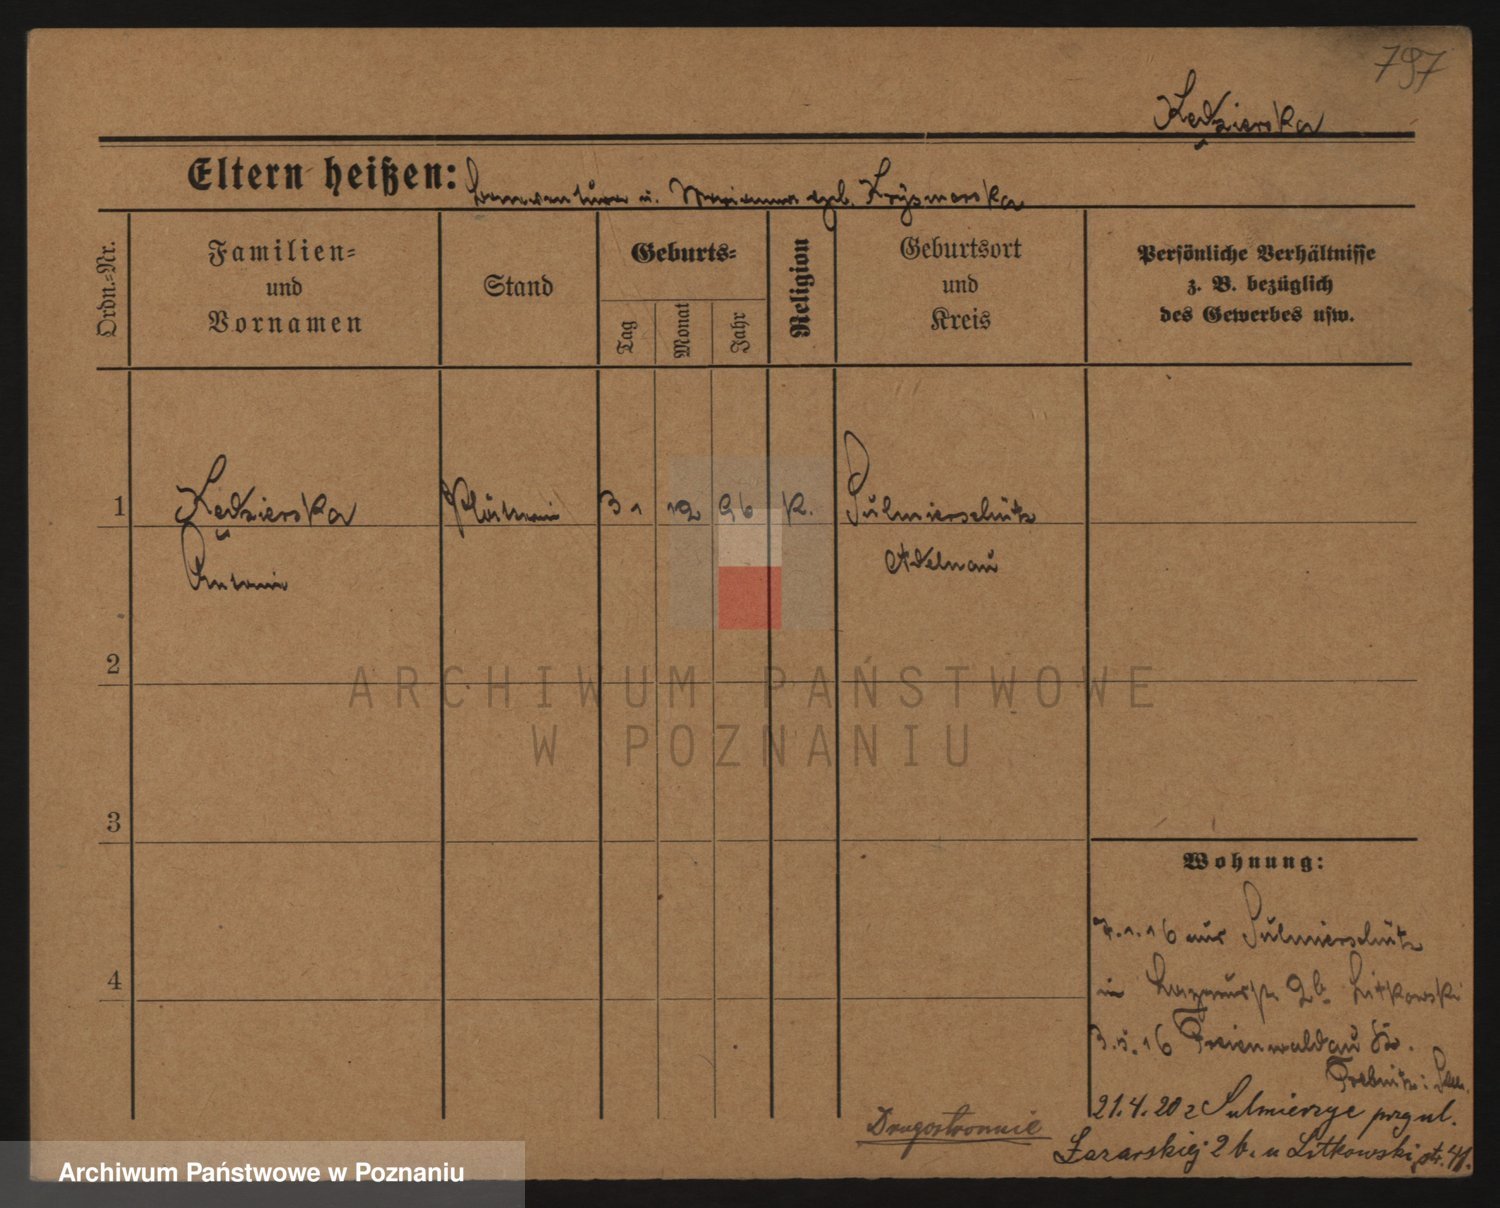 797
Kędzierska
Eltern heißen: Bonaventura u. Marianna geb.
Ordn.=Nr.
Familien=
und
Vornamen
Stand
Geburts=
Tag
Monat
Jahr
Religion
Geburtsort
und
Kreis
Persönliche Verhältnisse
z. B. bezüglich
des Gewerbes usw.
1
Kędzierska
Antonie
31 12 96 K.
Sulmierschütz
Adelnau
2
ARCHIWUM PAŃSTWOWE
W POZNANIU
3
4
Wohnung:
7.1.16 aus Sulmierschütz
in 2b Litkowski
3.5.16 Freienwaldau Kr.
Trebnitz i. Schl.
21.4.20 z Sulmierzyc przy ul.
Łazarskiej 2 b. u Litkowski str. 41.
Drugostronnie
Archiwum Państwowe w Poznaniu